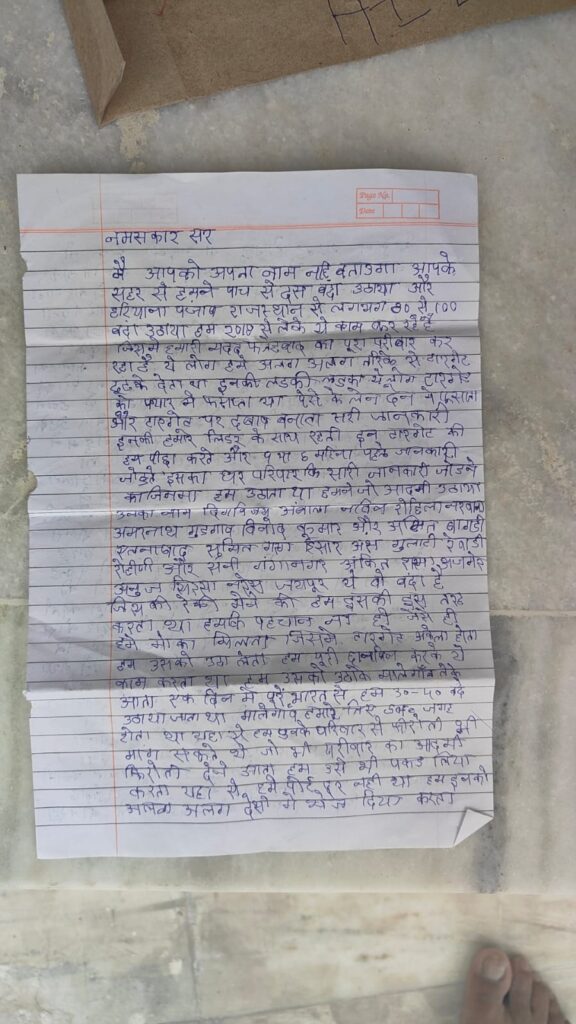 Page No.
Date
नमसकार सर
मै आपको अपना नाम नही बताउगा आपके
सहर से हमने पाच से दस बंदा उठाया और
हरियाना पंजाप राजस्थान से लगभग 80 से 100
बंदा उठाया हम 2018 से लेके ये काम कर रहे है
जिसमे हमारी मदद का पूरा परीवार कर
रहा है ये लोग हमे अलग अलग तरिके से टारगेट
ढुढके देता था इनकी लडकी लडका ये लोग टारगेट
को पयार मे फसाता था पैसे के लेन देन मे फसाता
और टारगेट पर दबाव बनाता सरी जानकारी
इनकी हमारे लिडर के साथ रहती इन टारगेट की
हम पीछा करते और 5 या 6 महिना पहले जानकारी
जोडते इसका घर परिवार कि सारी जानकारी जोडने
का जिनमा हम उठाता था हमने जो आदमी उठाया
उनका नाम दिगविजय अंबाला नविन रोहिला नरवाना
अमरनाथ गुडगाव विनोद कुमार और अमित बागडी
रतनाबाद सुमित गर्ग हिसार अंस गुलाटी रेवाडी
रोहीणी और सनी गंगानगर अंकित अजमेर
अनुज सिरसा नरेस जयपूर ये वो बंदा है
जिस की रेकी मैने की हम इसकी इस तरह
करता था इसके पहचान ना हो जैसे ही
हमे मोका मिलता जिसमे टारगेट अकेला होता
हम उसको उठा लेता हम पुरी करके ये
काम करता था हम उसको उठाके मालेगाँव लेके
आता एक दिन मे पूरे भारत से हम 30-40 बंदे
उठाया जाता था मालेगाँव हमारे लिए safe जगह
होता था यहा से हम इनके परिवार से फीरोती भी
माग सकते थे जो भी परीवार का आदमी
फिरोती देने आता हम उसे भी पकड लिया
करता यहा से हमे पोर्ट दूर नही था हम इनको
अलग देसो मे भेज दिया करता